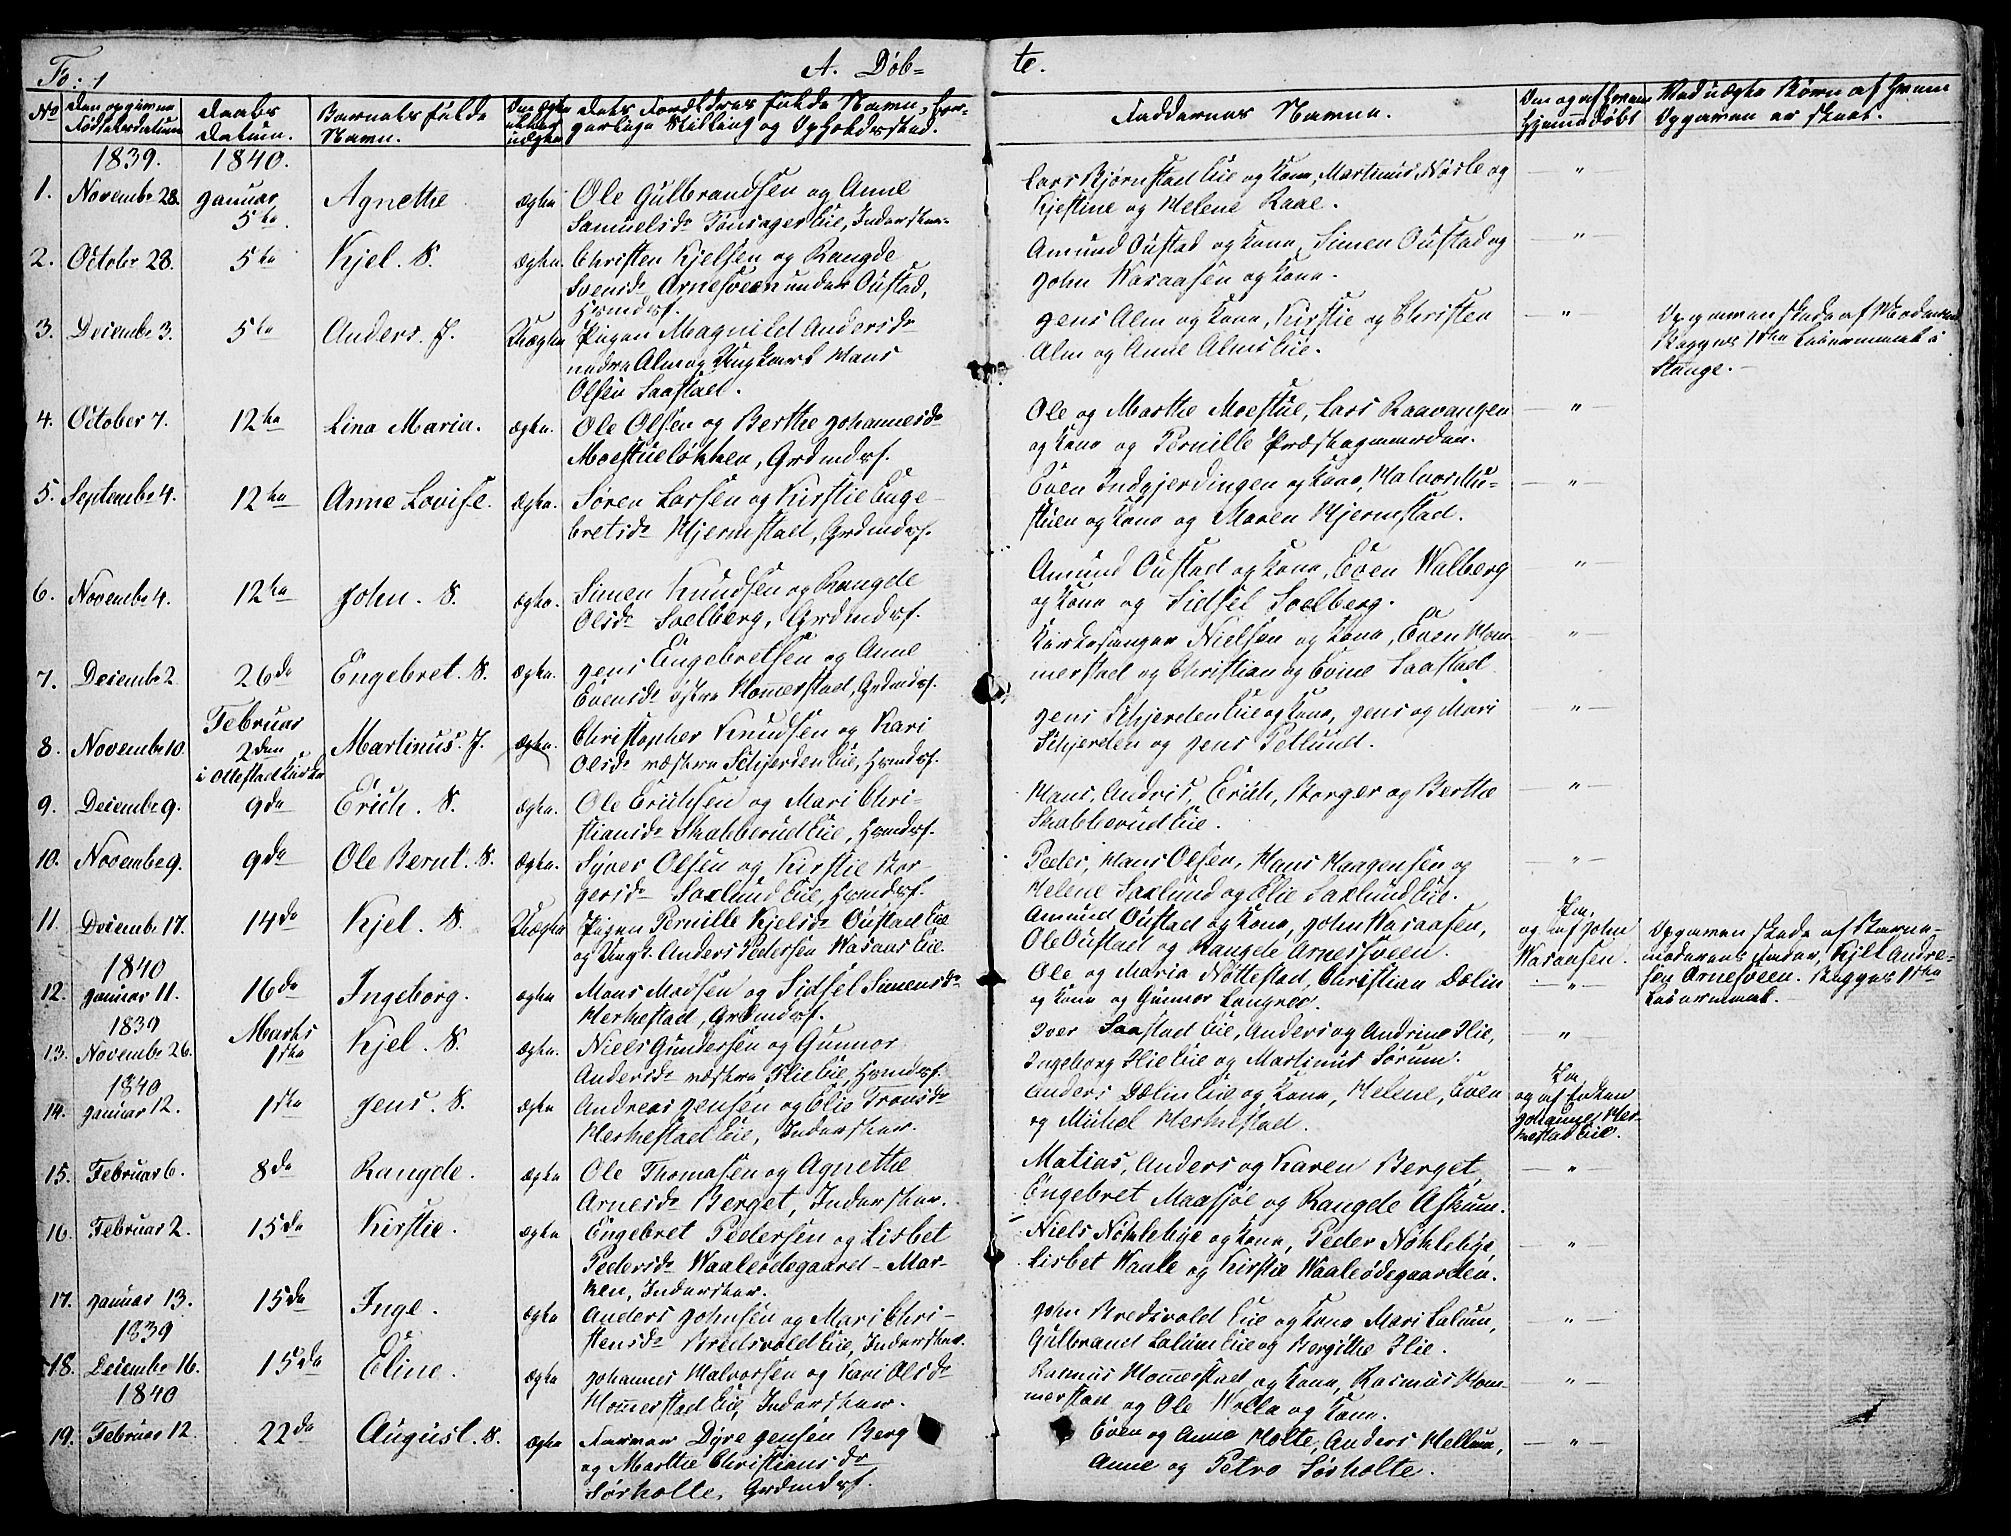 Fo: 1
A. Døb=
te.
No
den opgivne Fødselsdatum
Daabs Datum.
Barnets fulde Navn.
Om ægte eller uægte
dets Forældres fulde Navn, borgerlige Stilling og Opholdssted.
Faddernes Navne.
Om og af hvem hjemmedøbt
Ved uægte Børn af hvem Opgaven er skeet.
1839.
1840.
1. Novembr 28. Januar 5te Agnethe ægte Ole Gulbrandsen og Anne
Samuelsdr Tønsagereie, Inderskov
Lars Bjørnstadeie og Kone, Martinus Nøsle og
Kjestine og Helene Raae. — " —
2. Octobr 28. 5te Kjel. S. ægte. Christen Kjelsen og Rangde
Svensdr Arnesveen under Oustad,
Hrmdrf.
Amund Oustad og Kone, Simen Oustad og
John Wasaasen og Kone. — " —
3. Decembr 3. 5te Anders. J. Uægte Pigen Magnild Andersdr
nedre Alm og Ungkarl Hans
Olsen Saastad.
Jens Alm og Kone, Kirstie og Christen
Alm og Anne Almseie. — " —
Opgaven skede af Moderen
Begges 1ste Leiermaal i
Stange.
4. October 7. 12te Lina Maria. ægte. Ole Olsen og Berthe Johannesdr
Moestueløkken, Grdmdrf.
Ole og Marthe Moestue, Lars Raavangen
og Kone og Pernille Præstegaarden. — " —
5. Septembr 4. 12te Anne Lovise. ægte. Søren Larsen og Kirstie Enge-
bretsdr Hjermstad, Grdmdrf.
Even Indgjerdingen og Kone, Halvor Mu-
stuen og Kone og Maren Hjermstad. — " —
6. Novembr 4. 12te John. S. ægte. Simen Knudsen og Rangde
Olsdr Soelberg, Grdmdrf.
Amund Oustad og Kone, Even Walberg
og Kone og Sidsel Soelberg. — " —
7. Decembr 2. 26de Engebret. S. ægte. Jens Engebretsen og Anne
Evensdr østre Hommerstad, Grdmdrf.
Kirkesanger Nielsen og Kone, Even Hom-
merstad og Christian og Evine Saastad. — " —
8. Novembr 10. Februar 2den i Ottestad Kirke Martinus. J. ægte. Christopher Knudsen og Kari
Olsdr vestre Schjerdeneie, Hrmdrf.
Jens Schjerdeneie og Kone, Jens og Mari
Schjerden og Jens Petlund. — " —
9. Decembr 9. 9de Erich. S. ægte. Ole Erichsen og Mari Chri-
stiansdr Skabberudeie, Hrmdrf.
Hans, Andris, Erich, Borger og Berthe
Skabberudeie. — " —
10. Novembr 9. 9de Ole Bernt. S. ægte. Syver Olsen og Kirstie Bor-
gersdr Saxlundeie, Hrmdrf.
Peder, Hans Olsen, Hans Haagensen og
Helene Saxlund og Elie Saxlundeie. — " —
11. Decembr 17. 14de Kjel. S. Uægte Pigen Pernille Kjelsdr Oustadeie
og Ungk. Anders Pedersen Wasaaseie.
Amund Oustad og Kone, John Wasaasen,
Ole Oustad og Rangde Arnesveen.
Ja, og af John Wasaasen.
Opgaven skede af Barne-
moderens Fader, Kjell Andre-
sen Arnesveen. Begges 1ste
Leiermaal.
1840
12. Januar 11. 16de Ingeborg. ægte Mons Madsen og Sidsel Simensdr
Herkestad, Grdmdrf.
Ole og Maria Nøttestad, Christian Dølin
og Kone og Gunnor Langree. — " —
1839
13. Novembr 26. Marts 1ste Kjel. S. ægte. Niels Gundersen og Gunnor
Andersdr vestre Ilieeie, Hrmdrf.
Iver Saastadeie, Anders og Andrine Ilie,
Ingeborg Ilieeie og Martinus Sørum. — " —
1840
14. Januar 12. 1ste Jens. S. ægte Andreas Jensen og Elie Tronsdr
Herkestadeie, Inderskov.
Anders Dælineie og Kone, Helene, Even
og Michel Herkestad.
Ja og af Enken Johanne Herkestadeie.
15. Februar 6. 8de Rangde. ægte Ole Thomasen og Agnethe
Arnesdr Berget, Inderskov.
Matias, Anders og Karen Berget,
Engebret Maasjøe og Rangde Askum. — " —
16. Februar 2. 15de Kirstie. ægte Engebret Pedersen og Lisbet
Pedersdr Waaleødegaard-Mar-
ken, Inderskov.
Niels Nøklebye og Kone, Peder Nøklebye,
Lisbet Waale og Kirstie Waaleødegaarden. — " —
17. Januar 13. 15de Inge. ægte Anders Johnsen og Mari Chri-
stensdr Bredsvoldeie, Inderskov.
John Bredsvoldeie og Kone Mari Lalum,
Gulbrand Lalumeie og Bergithe Ilie. — " —
1839
18. Decembr 16. 15de Eline. ægte Johannes Halvorsen og Kari Olsdr
Hommerstadeie, Inderskov.
Rasmus Hommerstad og Kone, Rasmus Hom-
merstad og Ole Wolla og Kone. — " —
1840
19. Februar 12. 22de August. S. ægte Farver Dyre Jensen Berg
og Marthe Christiansdr
Sørholte, Grdmdrf.
Even og Anne Holte, Anders Hellum,
Anne og Petro Sørholte. — " —